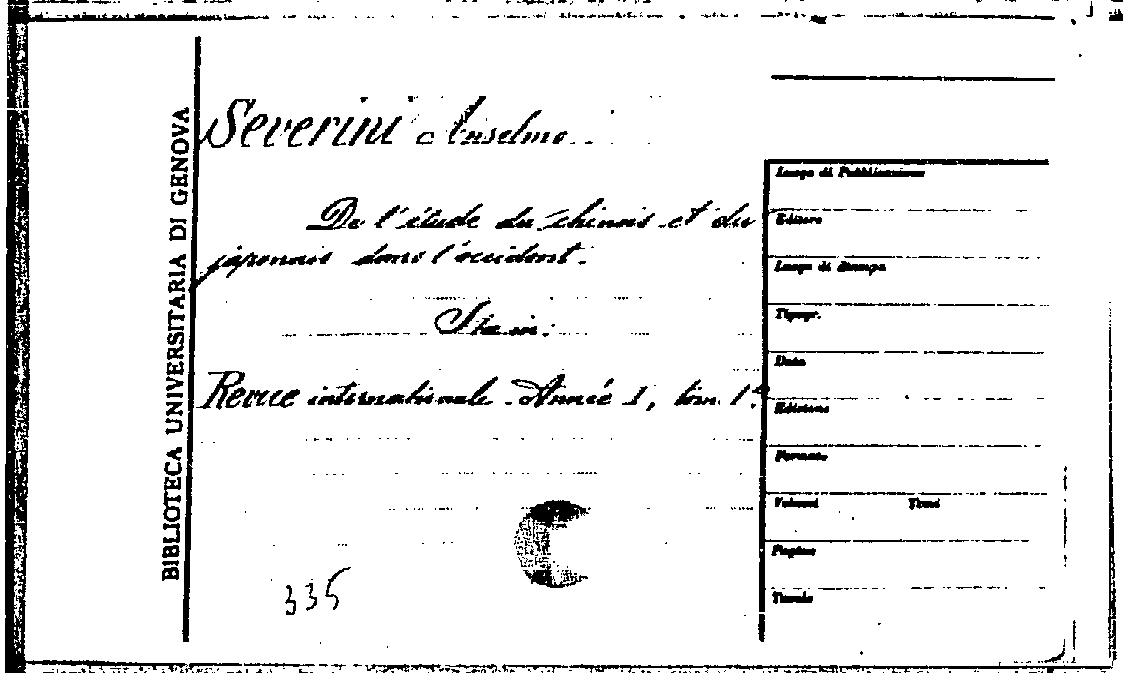 BIBLIOTECA UNIVERSITARIA DI GENOVA
Severini Anselmo.
De l'étude du chinois et du
japonais dans l'occident.
Sta in:
Revue internationale. Année 1, tom. 1.º
335
Luogo di Pubblicazione
Editore
Luogo di Stampa
Tipogr.
Data
Edizione
Formato
Volumi Tomi
Pagine
Tavole